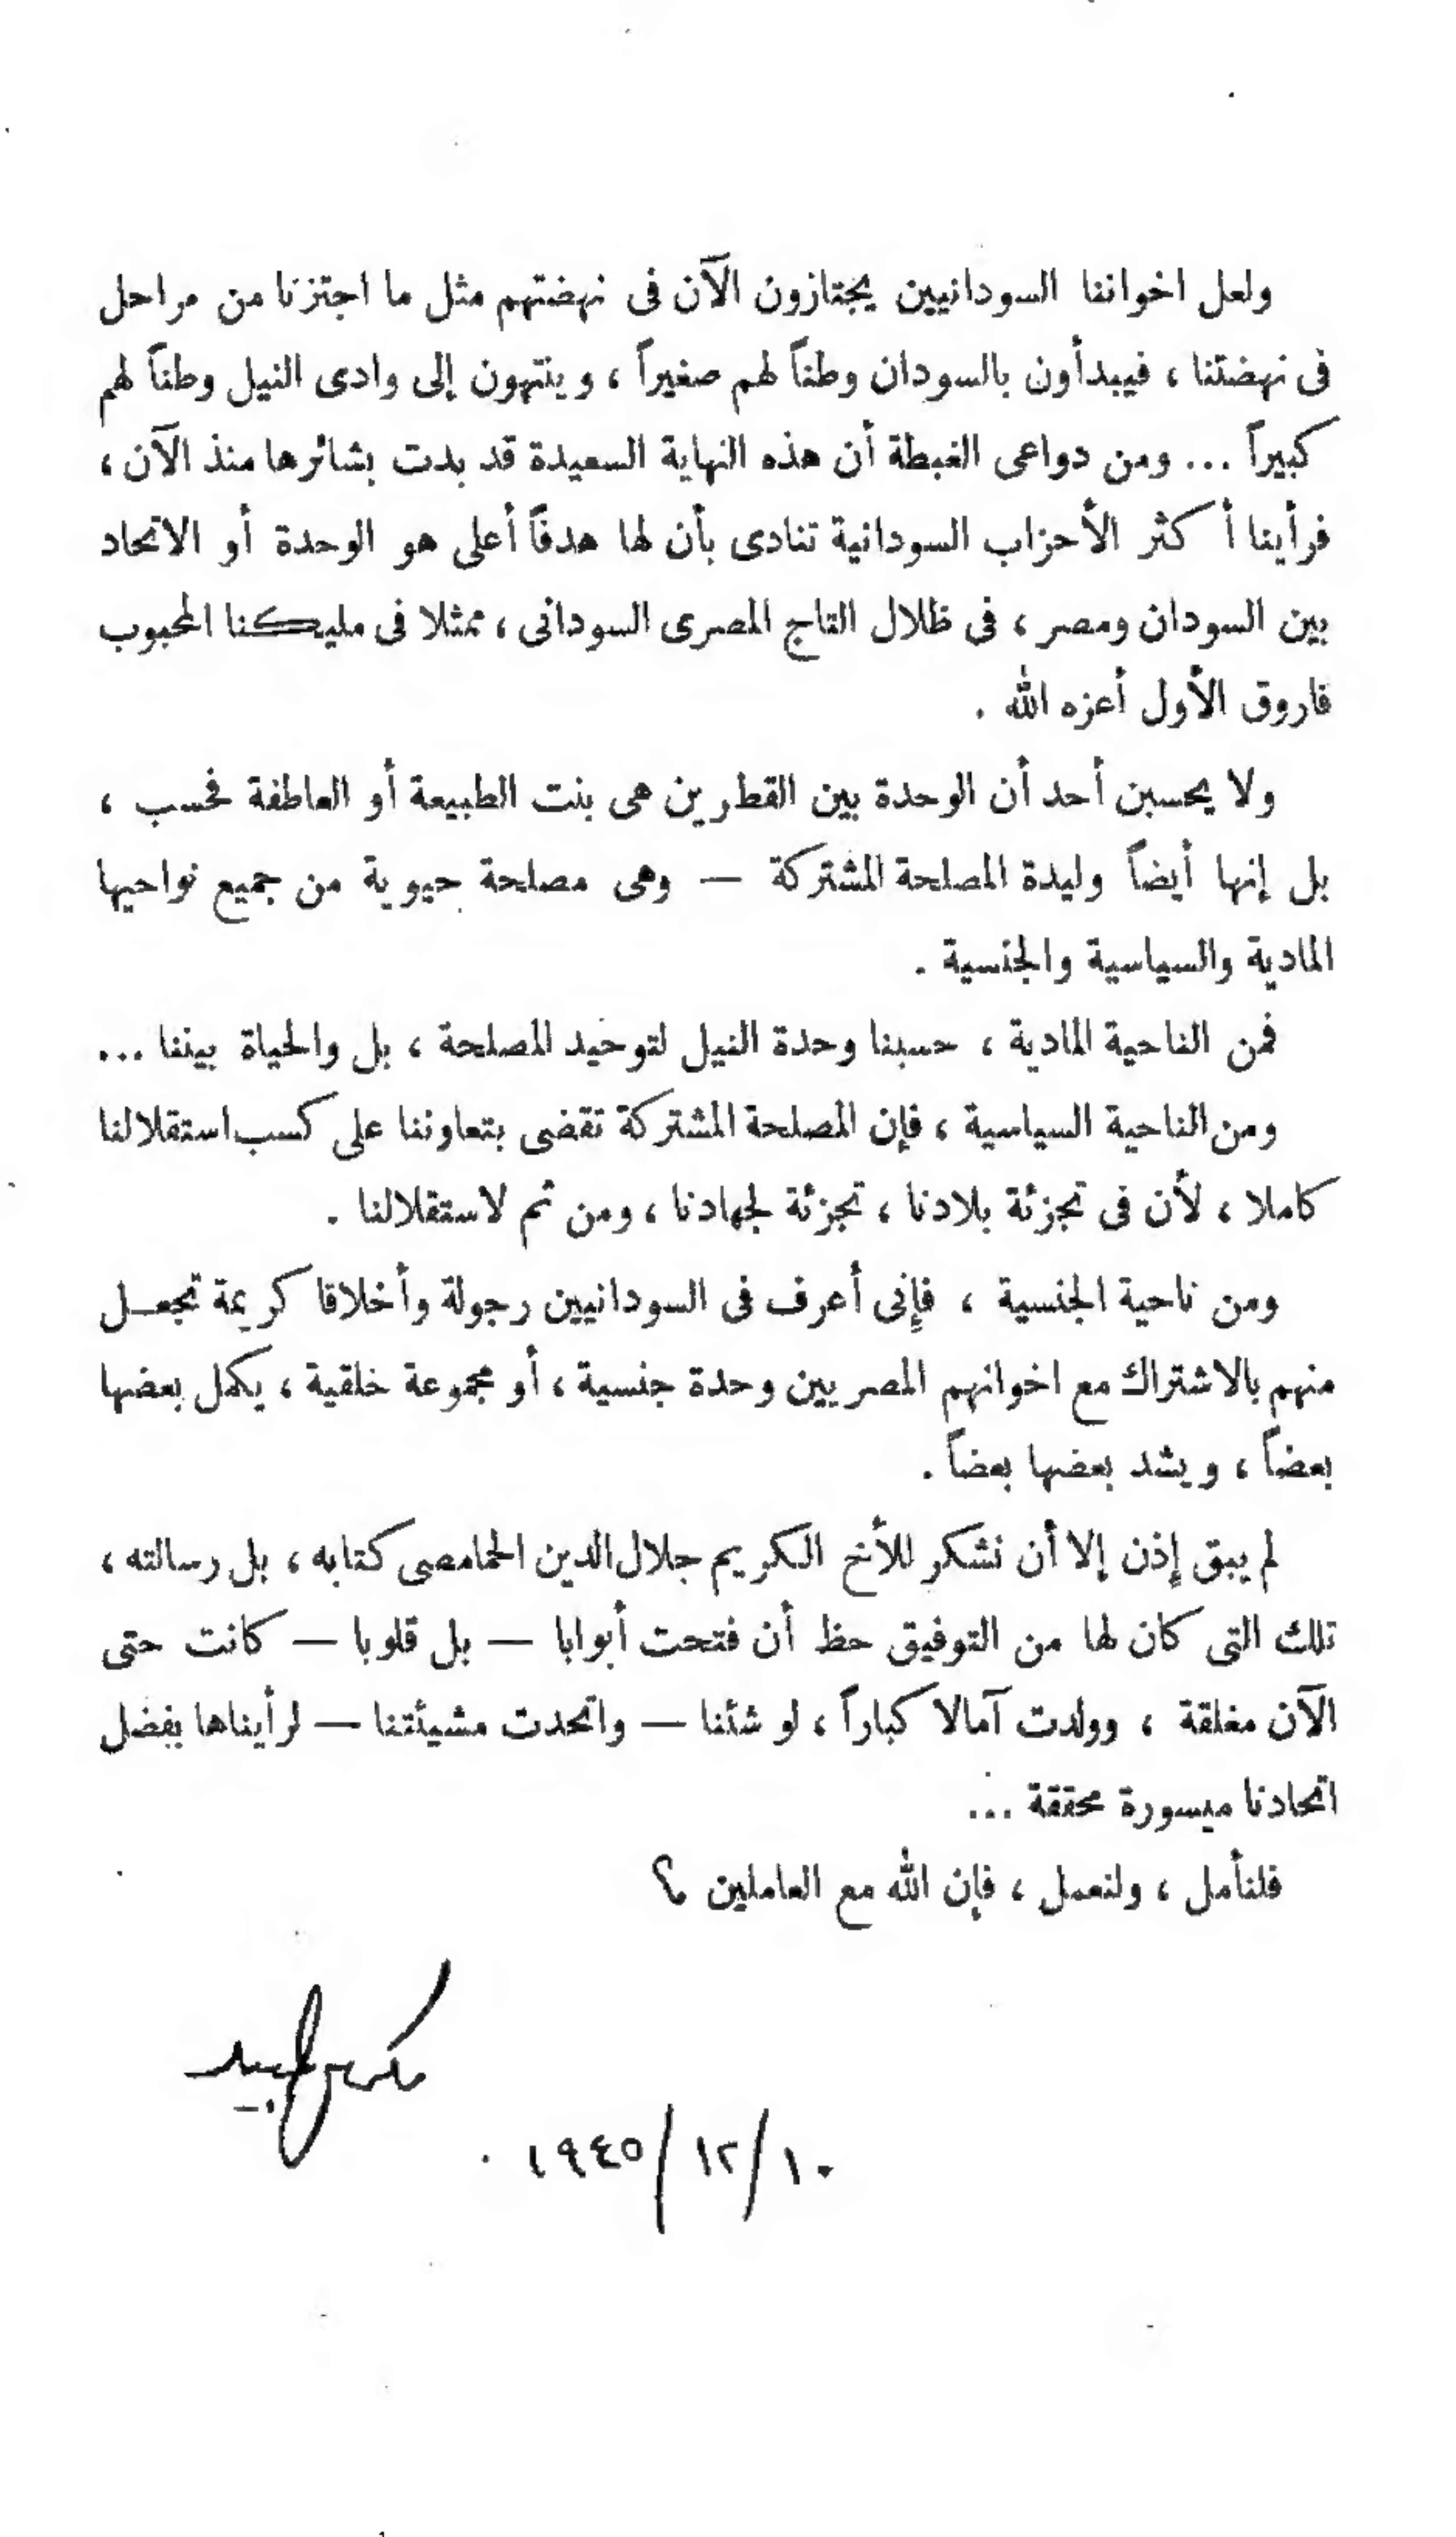 ولعل اخواننا السودانيين يجتازون الآن فى نهضتهم مثل ما اجتزنا من مراحل
فى نهضتنا ، فيبدأون بالسودان وطناً لهم صغيراً ، وينتهون إلى وادى النيل وطناً لهم
كبيراً ... ومن دواعى الغبطة أن هذه النهاية السعيدة قد بدت بشائرها منذ الآن ،
فرأينا أكثر الأحزاب السودانية تنادى بأن لها هدفاً أعلى هو الوحدة أو الاتحاد
بين السودان ومصر ، فى ظلال التاج المصرى السودانى ، ممثلا فى مليكنا المحبوب
فاروق الأول أعزه الله .
ولا يحسبن أحد أن الوحدة بين القطرين هى بنت الطبيعة أو العاطفة فحسب ،
بل إنها أيضاً وليدة المصلحة المشتركة — وهى مصلحة حيوية من جميع نواحيها
المادية والسياسية والجنسية .
فمن الناحية المادية ، حسبنا وحدة النيل لتوحيد المصلحة ، بل والحياة بيننا ...
ومن الناحية السياسية ، فإن المصلحة المشتركة تقضى بتعاوننا على كسب استقلالنا
كاملا ، لأن فى تجزئة بلادنا ، تجزئة لجهادنا ، ومن ثم لاستقلالنا .
ومن ناحية الجنسية ، فإنى أعرف فى السودانيين رجولة وأخلاقا كريمة تجعل
منهم بالاشتراك مع اخوانهم المصريين وحدة جنسية ، أو مجموعة خلقية ، يكمل بعضها
بعضاً ، ويشد بعضها بعضاً .
لم يبق إذن إلا أن نشكر للأخ الكريم جلال الدين الحمامصى كتابه ، بل رسالته ،
تلك التى كان لها من التوفيق حظ أن فتحت أبوابا — بل قلوبا — كانت حتى
الآن مغلقة ، وولدت آمالا كباراً ، لو شئنا — واتحدت مشيئتنا — لرأيناها بفضل
اتحادنا ميسورة محققة ...
فلنأمل ، ولنعمل ، فإن الله مع العاملين ؟
مكرم عبيد
١٠/١٢/١٩٤٥